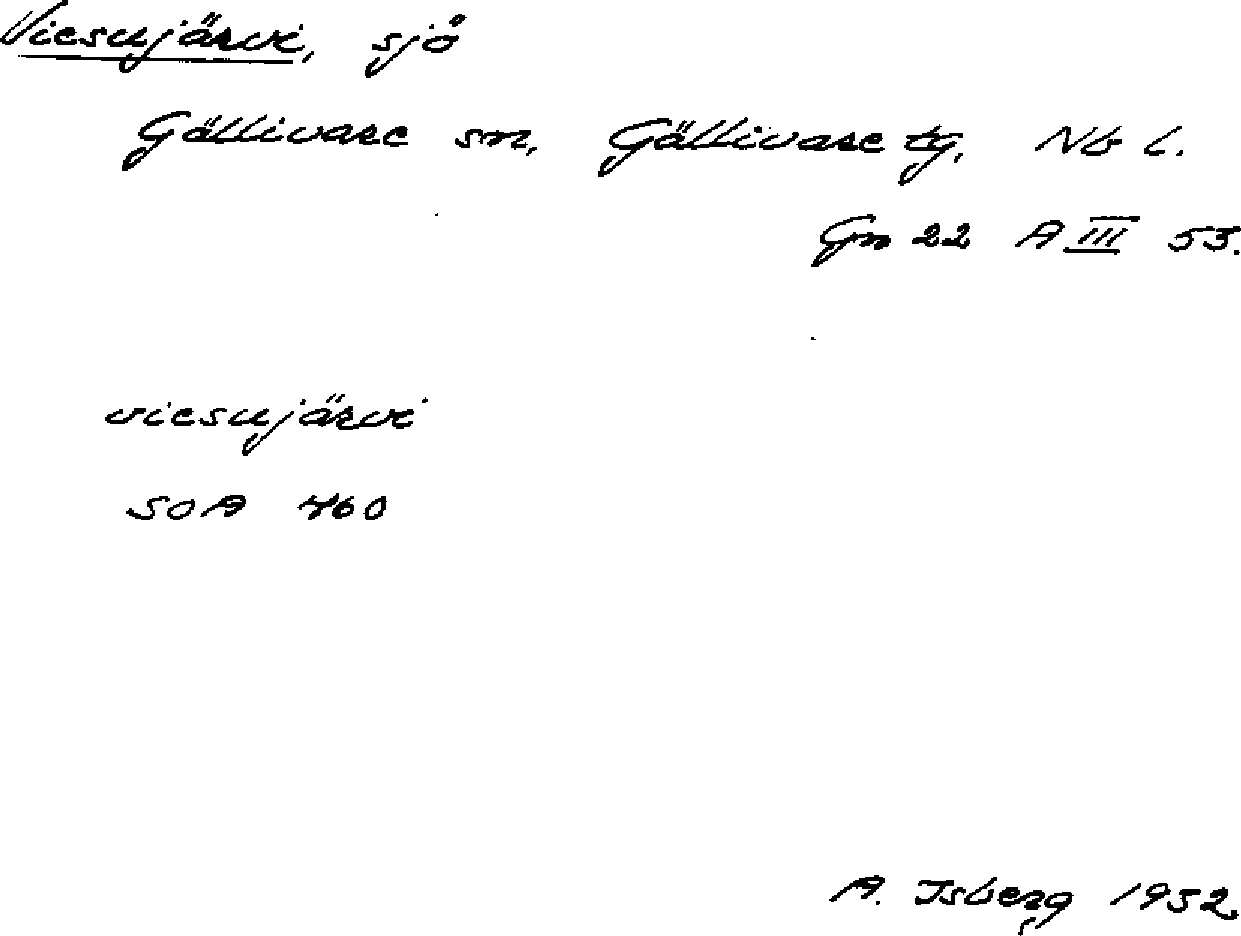 Viesujärvi, sjö
Gällivare sn, Gällivare tg, Nb l.
Gn 22 A III 53.
viesujärvi
SOA 460
A. Isberg 1952